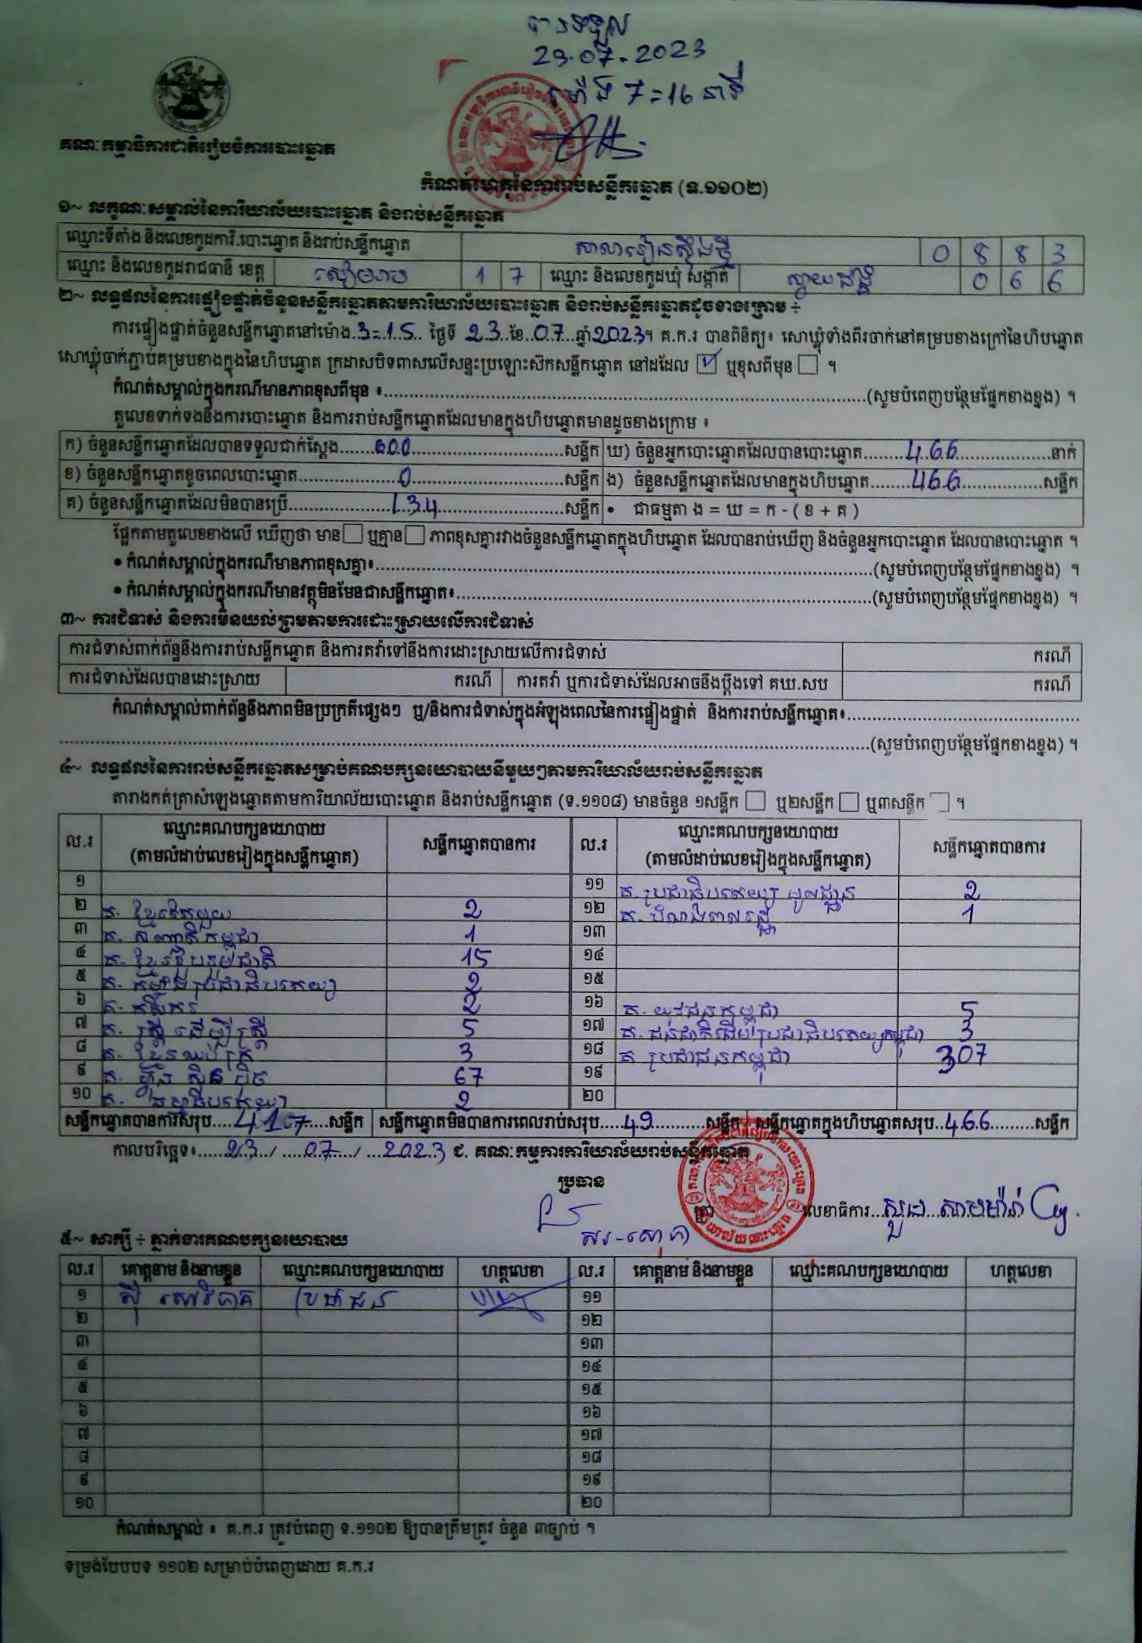 បានទទួល
23.07.2023
ម៉ោង 7:16 នាទី
គណៈកម្មាធិការជាតិរៀបចំការបោះឆ្នោត
កំណត់ហេតុនៃការរាប់សន្លឹកឆ្នោត (ទ.១១០២)
១~ លក្ខណៈសម្គាល់នៃការិយាល័យបោះឆ្នោត និងរាប់សន្លឹកឆ្នោត
ឈ្មោះទីតាំង និងលេខកូដការិ.បោះឆ្នោត និងរាប់សន្លឹកឆ្នោត 0 8 8 3
ឈ្មោះ និងលេខកូដរាជធានី ខេត្ត សៀមរាប 1 7 ឈ្មោះ និងលេខកូដឃុំ សង្កាត់ ស្វាយដង្គំ 0 6 6
២~ លទ្ធផលនៃការផ្ទៀងផ្ទាត់ចំនួនសន្លឹកឆ្នោតតាមការិយាល័យបោះឆ្នោត និងរាប់សន្លឹកឆ្នោតដូចខាងក្រោម ÷
ការផ្ទៀងផ្ទាត់ចំនួនសន្លឹកឆ្នោតនៅម៉ោង.3:15.. ថ្ងៃទី 23.ខែ.07...ឆ្នាំ2023។ គ.ក.រ បានពិនិត្យ៖ សោឃ្លុំទាំងពីរចាក់នៅគម្របខាងក្រៅនៃហិបឆ្នោត
សោឃ្លុំចាក់ភ្ជាប់គម្របខាងក្នុងនៃហិបឆ្នោត ក្រដាសបិទពាសលើសន្ទះប្រឡោះសិកសន្លឹកឆ្នោត នៅដដែល ☑ ឬខុសពីមុន ☐ ។
កំណត់សម្គាល់ក្នុងករណីមានភាពខុសពីមុន ៖.....(សូមបំពេញបន្ថែមផ្នែកខាងខ្នង) ។
តួលេខទាក់ទងនឹងការបោះឆ្នោត និងការរាប់សន្លឹកឆ្នោតដែលមានក្នុងហិបឆ្នោតមានដូចខាងក្រោម ៖
ក) ចំនួនសន្លឹកឆ្នោតដែលបានទទួលជាក់ស្តែង.......600.......សន្លឹក ឃ) ចំនួនអ្នកបោះឆ្នោតដែលបានបោះឆ្នោត........466........នាក់
ខ) ចំនួនសន្លឹកឆ្នោតខូចពេលបោះឆ្នោត.......0.......សន្លឹក ង) ចំនួនសន្លឹកឆ្នោតដែលមានក្នុងហិបឆ្នោត........466........សន្លឹក
គ) ចំនួនសន្លឹកឆ្នោតដែលមិនបានប្រើ.......134.......សន្លឹក • ជាធម្មតា ង = ឃ = ក - ( ខ + គ )
ផ្អែកតាមតួលេខខាងលើ ឃើញថា មាន☐ ឬគ្មាន☐ ភាពខុសគ្នារវាងចំនួនសន្លឹកឆ្នោតក្នុងហិបឆ្នោត ដែលបានរាប់ឃើញ និងចំនួនអ្នកបោះឆ្នោត ដែលបានបោះឆ្នោត ។
• កំណត់សម្គាល់ក្នុងករណីមានភាពខុសគ្នា៖.....(សូមបំពេញបន្ថែមផ្នែកខាងខ្នង) ។
• កំណត់សម្គាល់ក្នុងករណីមានវត្ថុមិនមែនជាសន្លឹកឆ្នោត៖.....(សូមបំពេញបន្ថែមផ្នែកខាងខ្នង) ។
៣~ ការជំទាស់ និងការមិនយល់ព្រមតាមការដោះស្រាយលើការជំទាស់
ការជំទាស់ពាក់ព័ន្ធនឹងការរាប់សន្លឹកឆ្នោត និងការតវ៉ាទៅនឹងការដោះស្រាយលើការជំទាស់ ករណី
ការជំទាស់ដែលបានដោះស្រាយ ករណី ការតវ៉ា ឬការជំទាស់ដែលអាចនឹងប្តឹងទៅ គឃ.សប ករណី
កំណត់សម្គាល់ពាក់ព័ន្ធនឹងភាពមិនប្រក្រតីផ្សេងៗ ឬ/និងការជំទាស់ក្នុងអំឡុងពេលនៃការផ្ទៀងផ្ទាត់ និងការរាប់សន្លឹកឆ្នោត៖.....
.....(សូមបំពេញបន្ថែមផ្នែកខាងខ្នង) ។
៤~ លទ្ធផលនៃការរាប់សន្លឹកឆ្នោតសម្រាប់គណបក្សនយោបាយនីមួយៗតាមការិយាល័យរាប់សន្លឹកឆ្នោត
តារាងកត់ត្រាសំឡេងឆ្នោតតាមការិយាល័យបោះឆ្នោត និងរាប់សន្លឹកឆ្នោត (ទ.១១០៨) មានចំនួន ១សន្លឹក ☐ ឬ២សន្លឹក ☐ ឬ៣សន្លឹក ☐ ។
ល.រ ឈ្មោះគណបក្សនយោបាយ (តាមលំដាប់លេខរៀងក្នុងសន្លឹកឆ្នោត) សន្លឹកឆ្នោតបានការ ល.រ ឈ្មោះគណបក្សនយោបាយ (តាមលំដាប់លេខរៀងក្នុងសន្លឹកឆ្នោត) សន្លឹកឆ្នោតបានការ
១ ១១ គ. ប្រជាធិបតេយ្យ មូលដ្ឋាន 2
២ គ. ខ្មែរតែមួយ 2 ១២ គ. បំណងពលរដ្ឋ 1
៣ គ. សញ្ជាតិកម្ពុជា 1 ១៣
៤ គ. ខ្មែររួបរួមជាតិ 15 ១៤
៥ គ. កម្លាំងប្រជាធិបតេយ្យ 2 ១៥
៦ គ. កសិករ 2 ១៦ គ. យុវជនកម្ពុជា 5
៧ គ. ស្ត្រី ដើម្បីស្ត្រី 5 ១៧ គ. ជនជាតិដើមប្រជាធិបតេយ្យកម្ពុជា 3
៨ គ. ខ្មែរឈប់ក្រ 3 ១៨ គ ប្រជាជនកម្ពុជា 307
៩ គ. ហ្វ៊ុន ស៊ិន ប៉ិច 67 ១៩
១០ គ. ធម្មាធិបតេយ្យ 2 ២០
សន្លឹកឆ្នោតបានការសរុប....417....សន្លឹក សន្លឹកឆ្នោតមិនបានការពេលរាប់សរុប....49....សន្លឹក សន្លឹកឆ្នោតក្នុងហិបឆ្នោតសរុប..466....សន្លឹក
កាលបរិច្ឆេទ៖......23./.....07..../....2023 ជ. គណៈកម្មការការិយាល័យរាប់សន្លឹកឆ្នោត
ប្រធាន
លេខាធិការ...សួង
៥~ សាក្សី ÷ ភ្នាក់ងារគណបក្សនយោបាយ
ល.រ គោត្តនាម និងនាមខ្លួន ឈ្មោះគណបក្សនយោបាយ ហត្ថលេខា ល.រ គោត្តនាម និងនាមខ្លួន ឈ្មោះគណបក្សនយោបាយ ហត្ថលេខា
១ ប្រជាជន ១១
២ ១២
៣ ១៣
៤ ១៤
៥ ១៥
៦ ១៦
៧ ១៧
៨ ១៨
៩ ១៩
១០ ២០
កំណត់សម្គាល់ ៖ គ.ក.រ ត្រូវបំពេញ ទ.១១០២ ឱ្យបានត្រឹមត្រូវ ចំនួន ៣ច្បាប់ ។
ទម្រង់បែបបទ ១១០២ សម្រាប់បំពេញដោយ គ.ក.រ